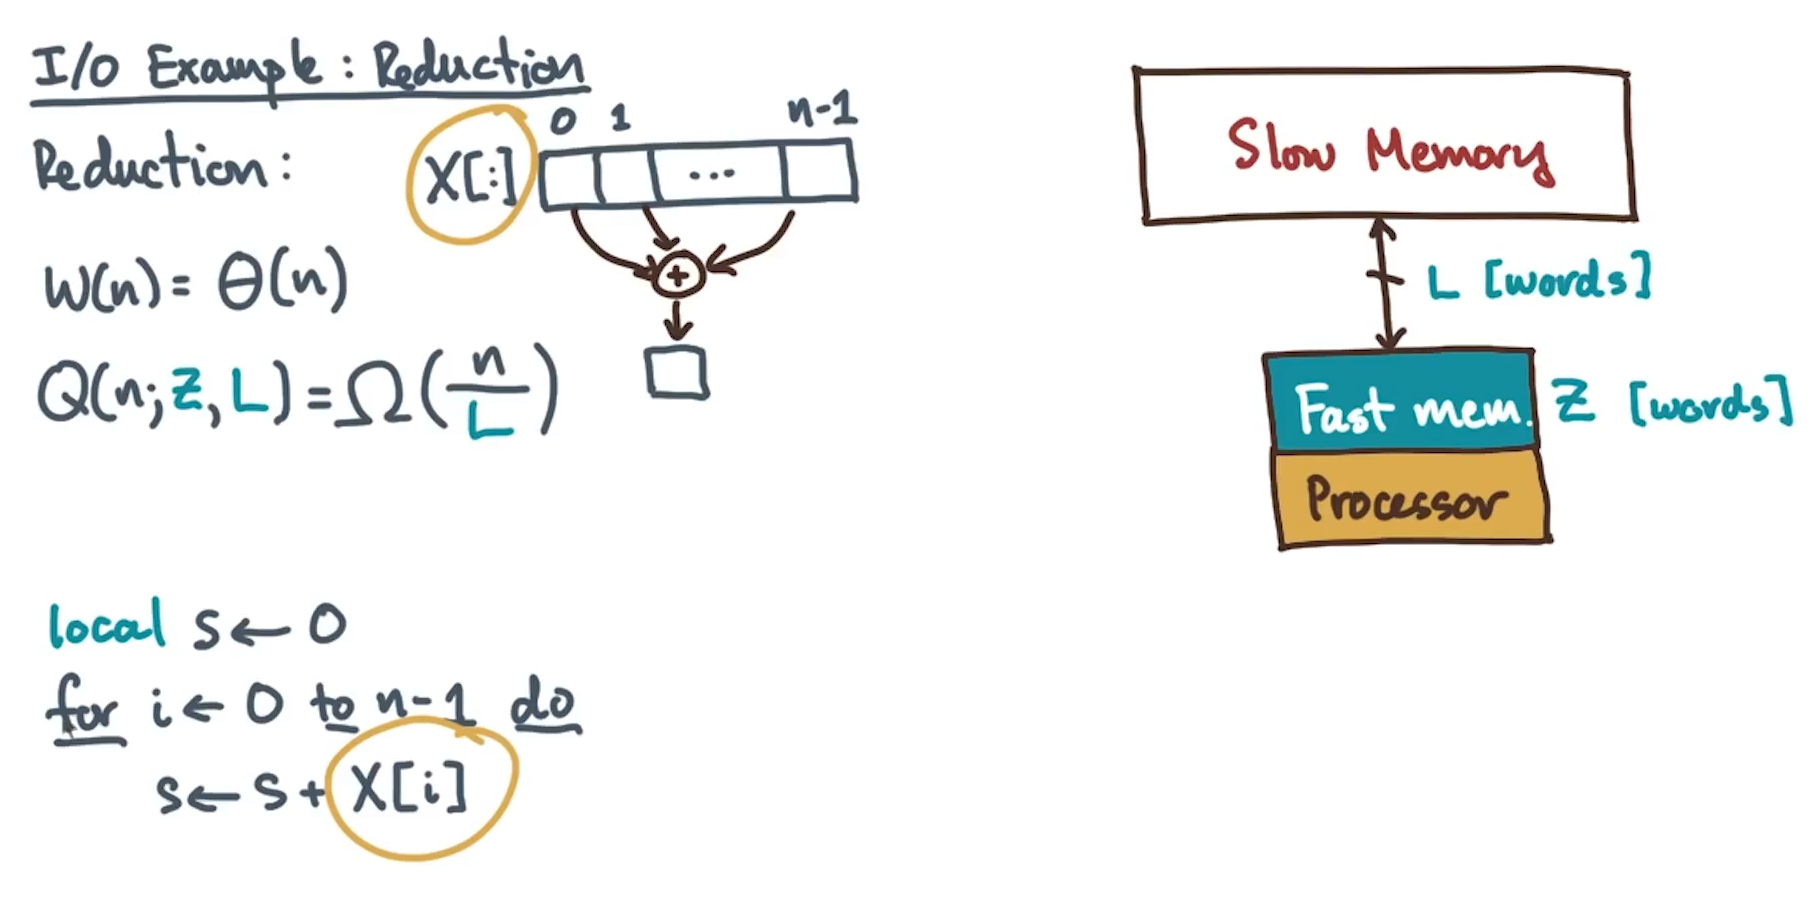 I/O Example: Reduction
0 1 n-1
Reduction: X[:] ...
+
W(n) = Θ(n)
Q(n; Z, L) = Ω(n/L)
local s ← 0
for i ← 0 to n-1 do
s ← s + X[i]
Slow Memory
L [words]
Fast mem. Z [words]
Processor